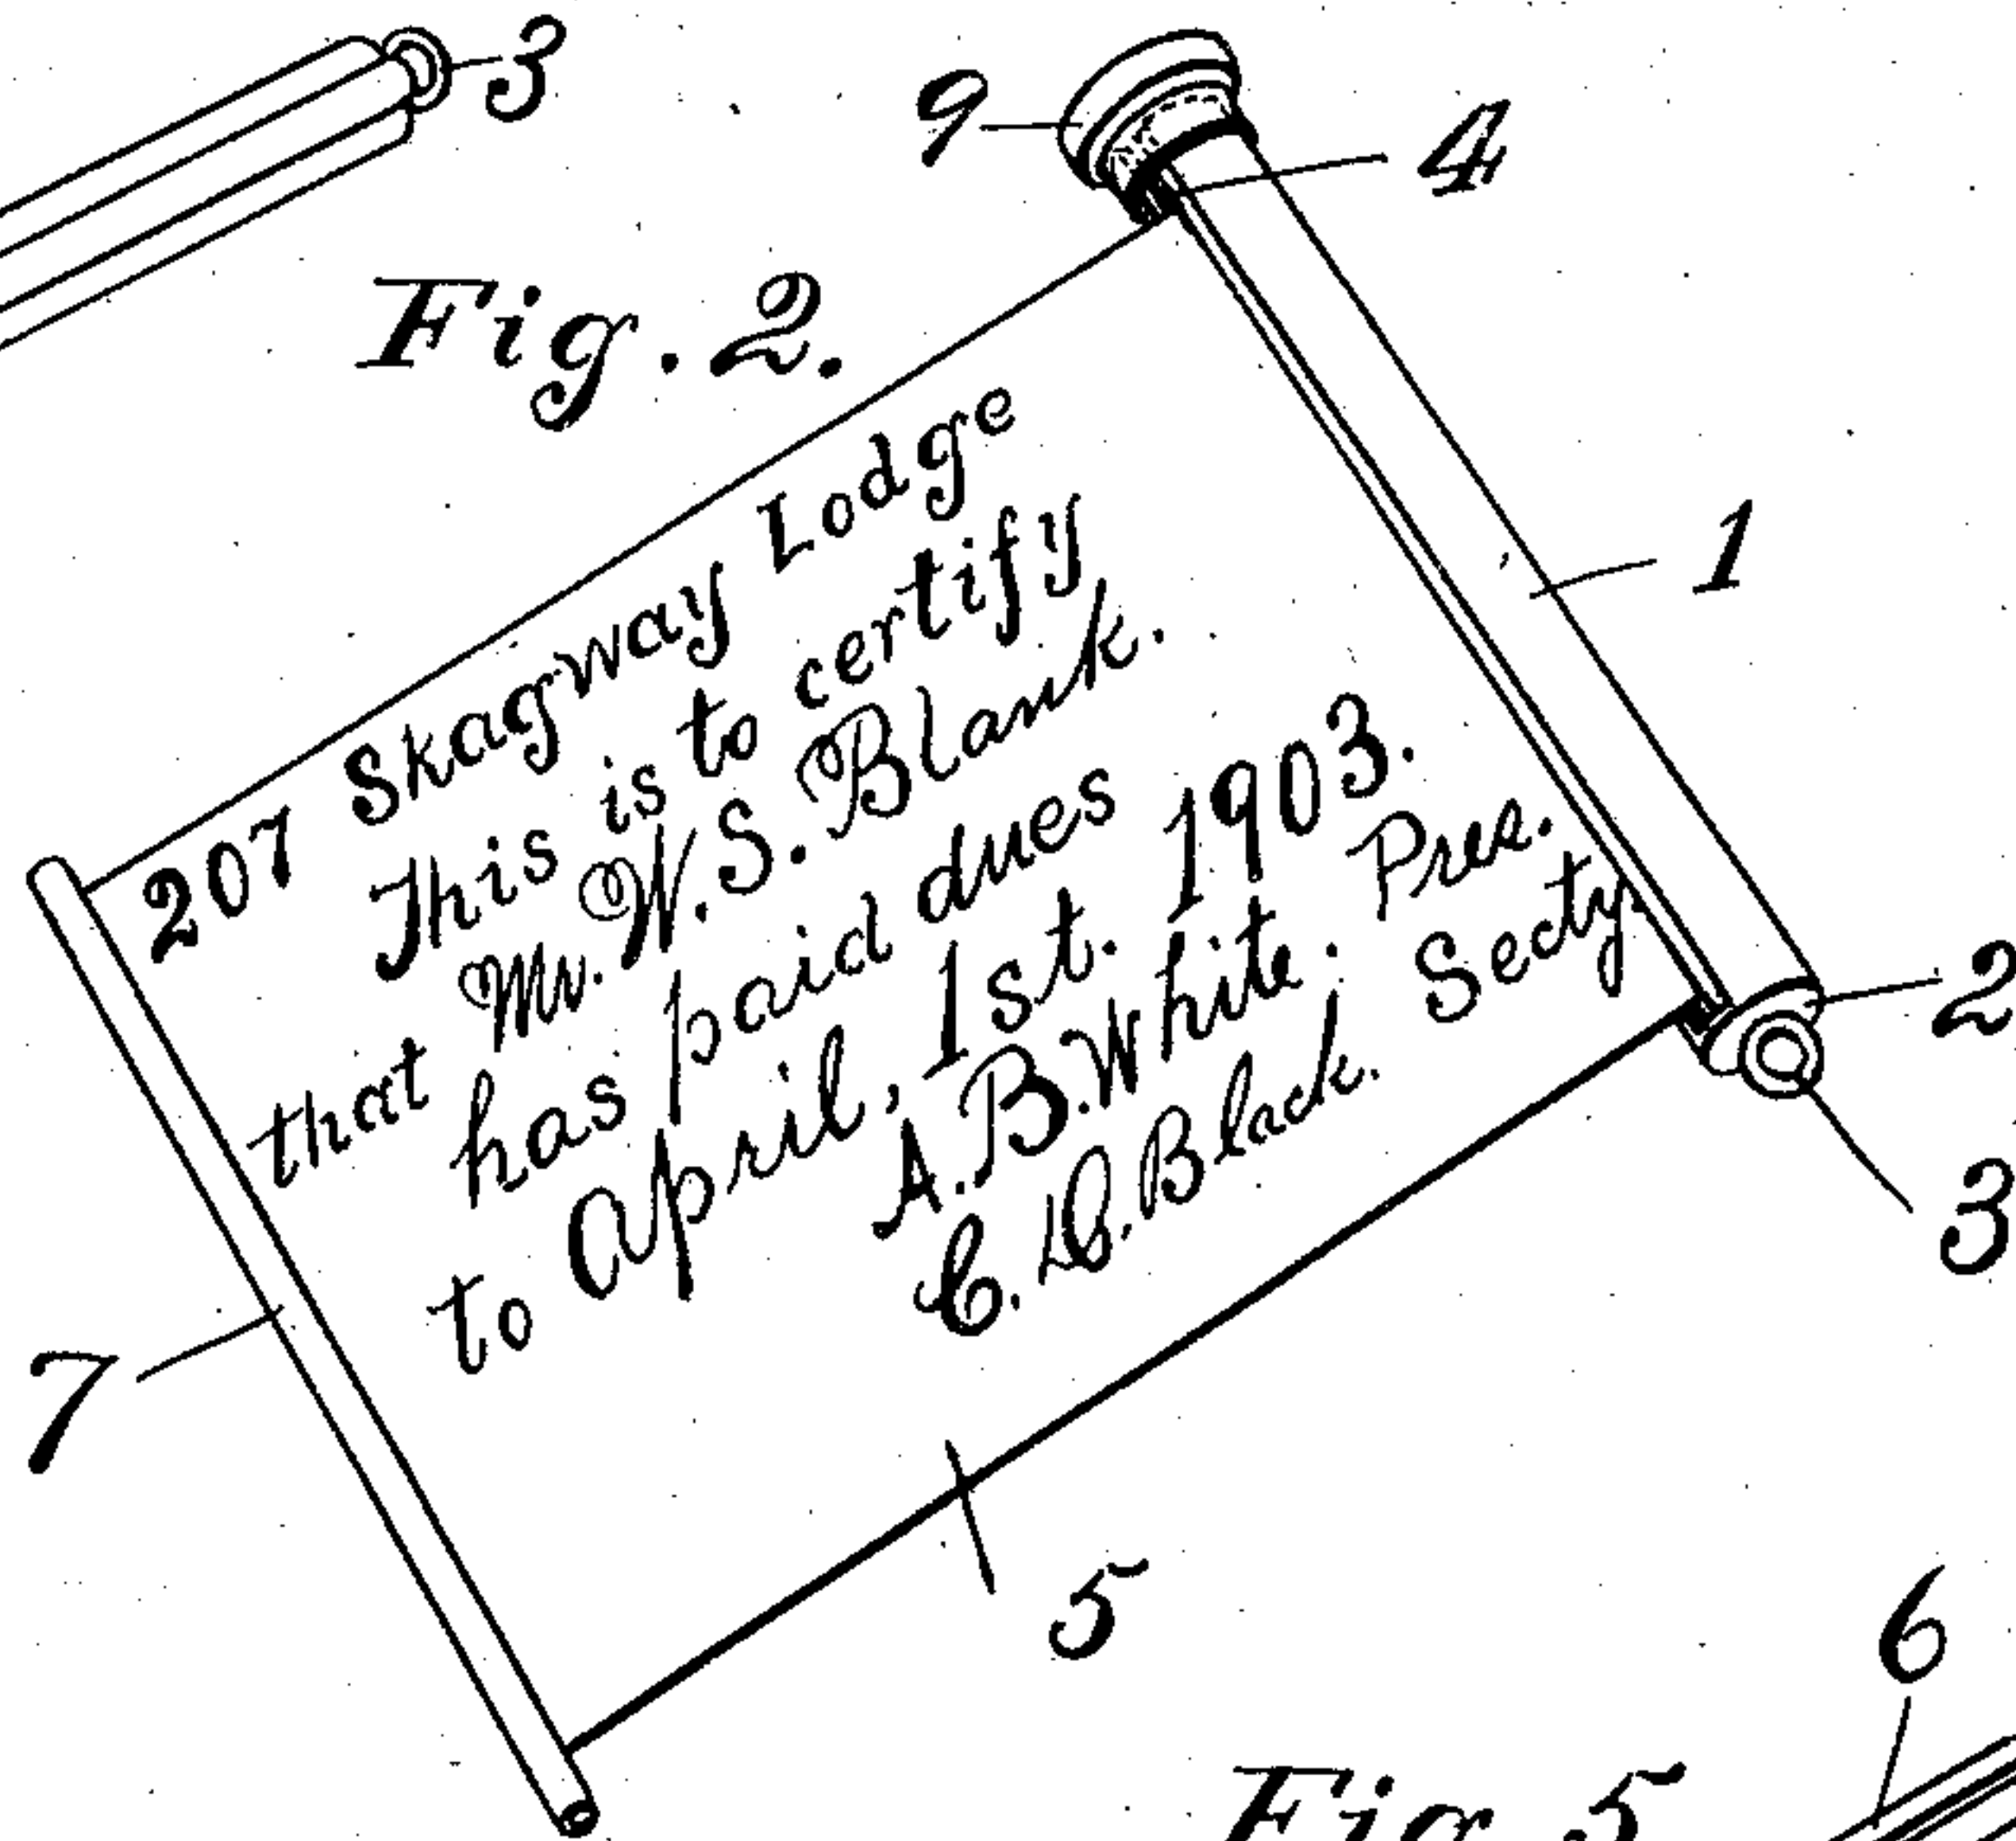 3
9
4
Fig. 2.
1
207 Skagway Lodge
This is to certify
that Mr. W. S. Blank.
has paid dues
to April, 1st. 1903.
A. B. White. Pres.
C. D. Black. Secty
2
3
7
5
6
Fig. 5